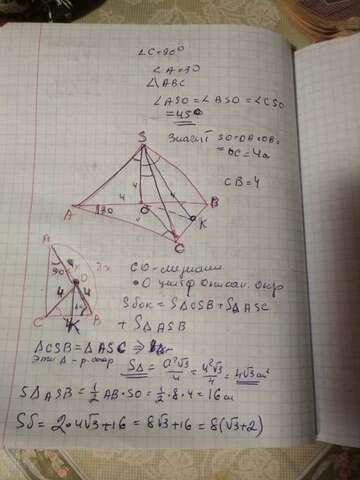 ∠C=90°
∠A=30
△ABC
∠ASO=∠BSO=∠CSO
=45°
S
Значит SO=OA=OB=
=OC=4см
CB=4
4
4
4
A
30
O
B
K
C
A
30
4
O
4
4
C
K
B
CO-медиана
•O центр описан. окр
Sбок = S△CSB+S△ASC
+ S△ASB
△CSB=△ASC ⇒
эти △ - р. стор
S△ = a²√3/4 = 4²√3/4 = 4√3 см²
S△ASB = 1/2 AB·SO = 1/2·8·4=16 см
Sб = 2·4√3+16 = 8√3+16 = 8(√3+2)